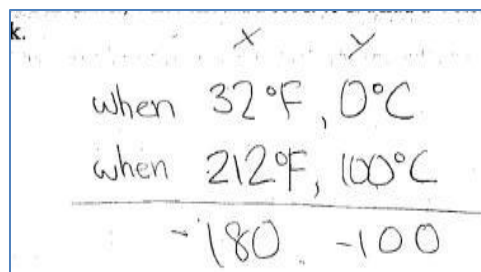 k.
x y
when 32°F, 0°C
when 212°F, 100°C
-180 -100